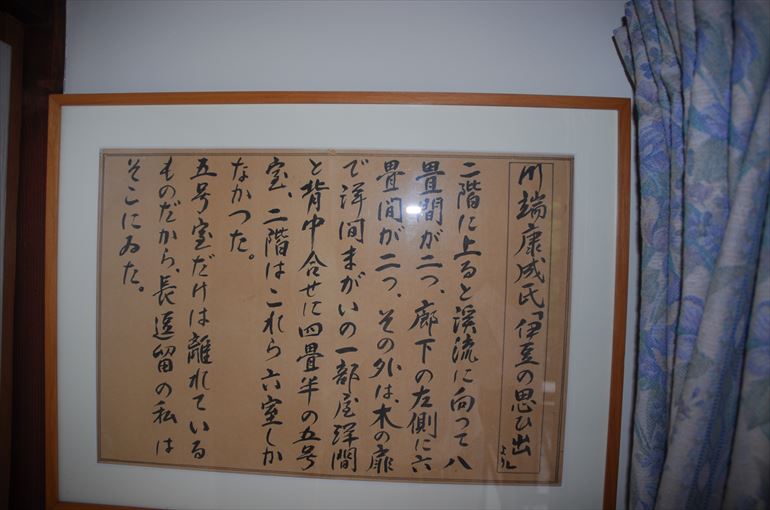 川端康成氏「伊豆の思ひ出」より
二階に上ると渓流に向つて八
畳間が二つ、廊下の左側に六
畳間が二つ、その外は、木の扉
で洋間まがいの一部屋洋間
と背中合せに四畳半の五号
室、二階はこれら六室しか
なかつた。
五号室だけは離れている
ものだから、長逗留の私は
そこにゐた。